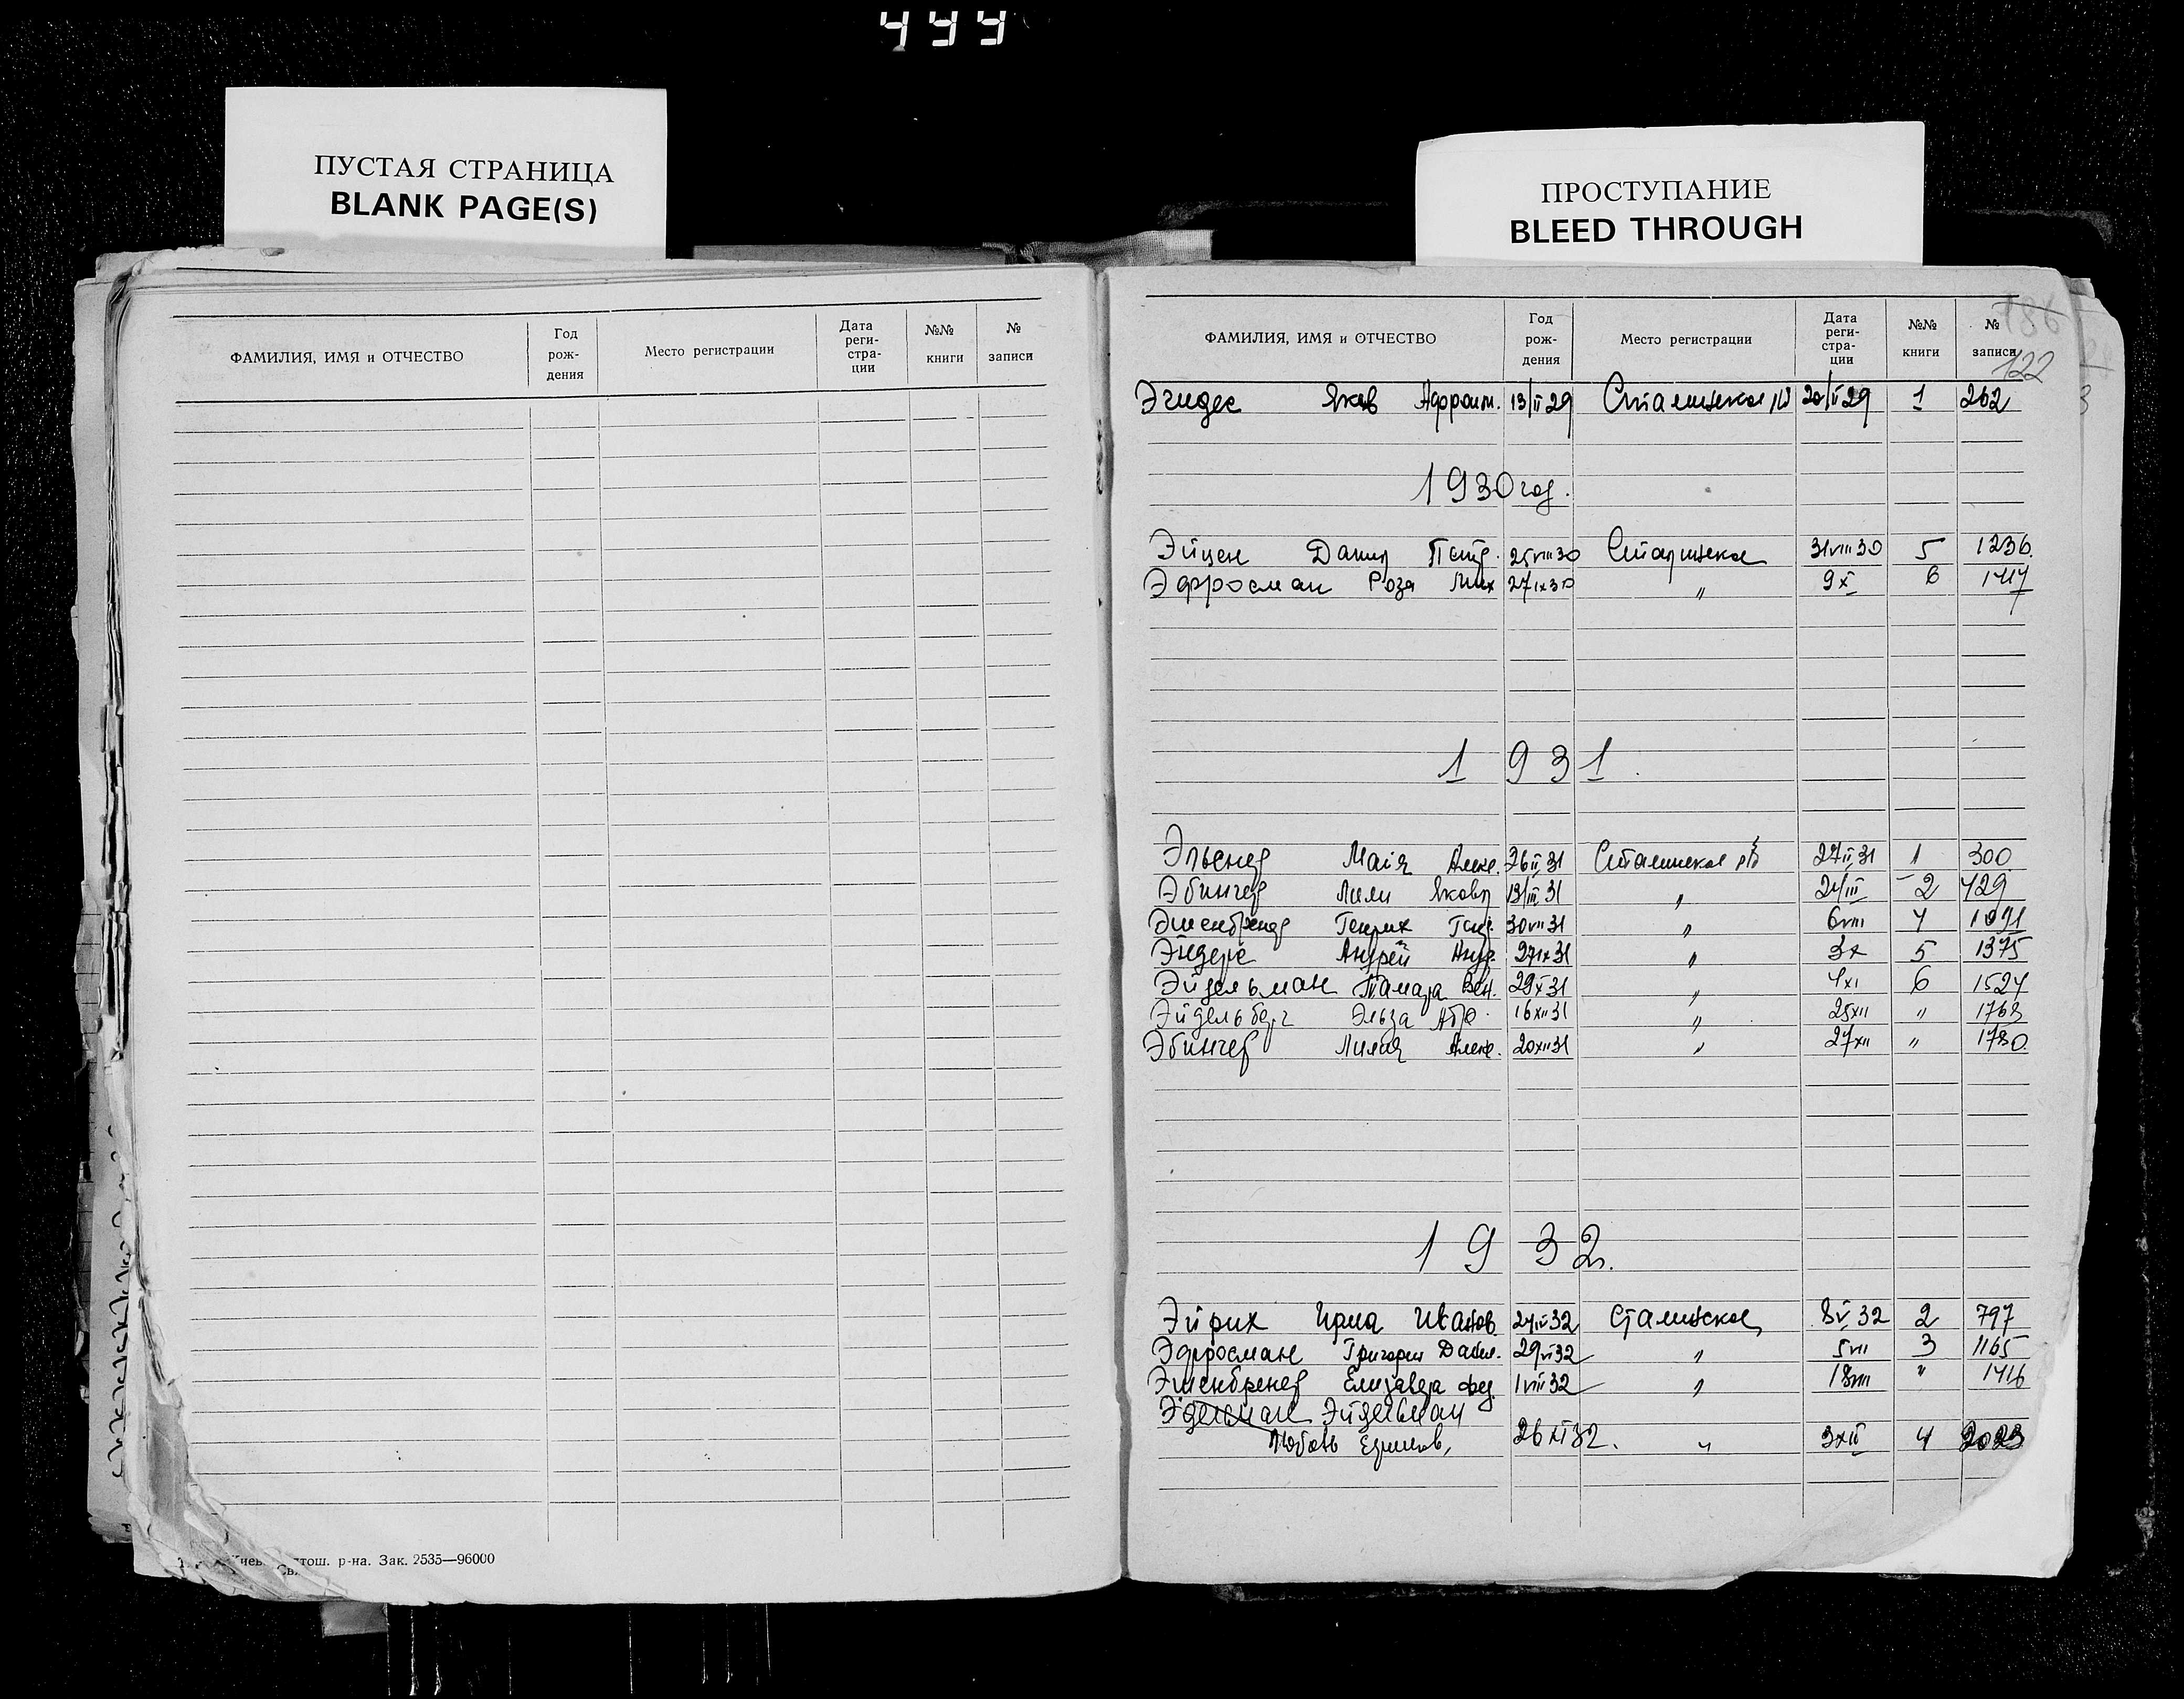 444
ПУСТАЯ СТРАНИЦА
BLANK PAGE(S)
ПРОСТУПАНИЕ
BLEED THROUGH
ФАМИЛИЯ, ИМЯ и ОТЧЕСТВО Год рож- дения Место регистрации Дата реги- стра- ции №№ книги № записи
р-на. Зак. 2535—96000
ФАМИЛИЯ, ИМЯ и ОТЧЕСТВО Год рож- дения Место регистрации Дата реги- стра- ции №№ книги № записи
186
122
Эгидес Яков Афроим. 13/II 29 Сталинское 20/II 29 1 262
1930 год.
Эйцен 25 VIII 30 Сталинское 31 VIII 30 5 1236.
Эфросман Роза Мих 27 IX 30 " 9 X 6
1931
Маія Алекс. 26 II 31 Сталинское 27 II 31 1 300
Эбингер Лили Яковл 13/III 31 " 21/III 2 429
Эшенбренер Генрих 30 VII 31 " 6 VIII 4 1091
Эндере Андрей Андр. 27 IX 31 " 3 X 5 1375
Эйдельман Тамара Вен. 29 X 31 " 4 XI 6 1524
Эйдельберг Эльза Абр. 16 XII 31 " 25 XII " 1763
Эбингер Лилия Алекс. 20 XII 31 " 27 XII " 1780
1932.
Эйрих Ирма Иванов. 32 Сталинское 8 V 32 2 797
Эфросман Григорий Давид. 29 VI 32 " 5 VII 3 1165
Эшенбренер Елизавета Фед 1 VIII 32 " 18 VIII " 1416
Эйдельман
Любовь Ефимов, 26 XI 32. " 3 XII 4 2023